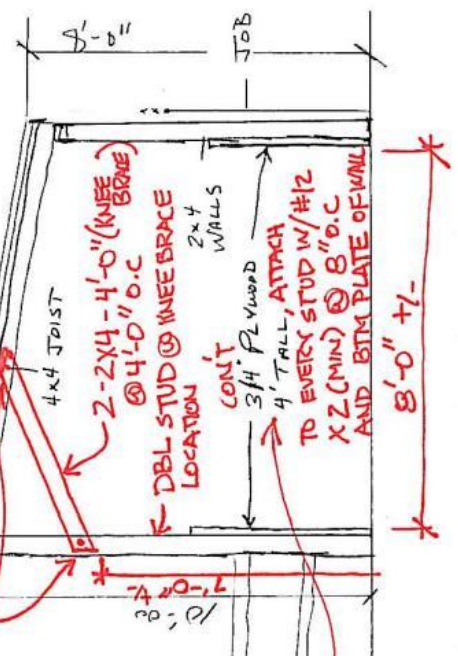 8'-0"
JOB
4x4 JOIST
2-2X4-4'-0" (KNEE
BRACE)
@ 4'-0" O.C
DBL STUD @ KNEE BRACE
LOCATION
2x4
WALLS
CON'T
3/4" PLYWOOD
4' TALL, ATTACH
TO EVERY STUD W/ #12
X2 (MIN) @ 8" O.C
AND BTM PLATE OF WALL
8'-0" +/-
7'-0" +/-
10'-0"